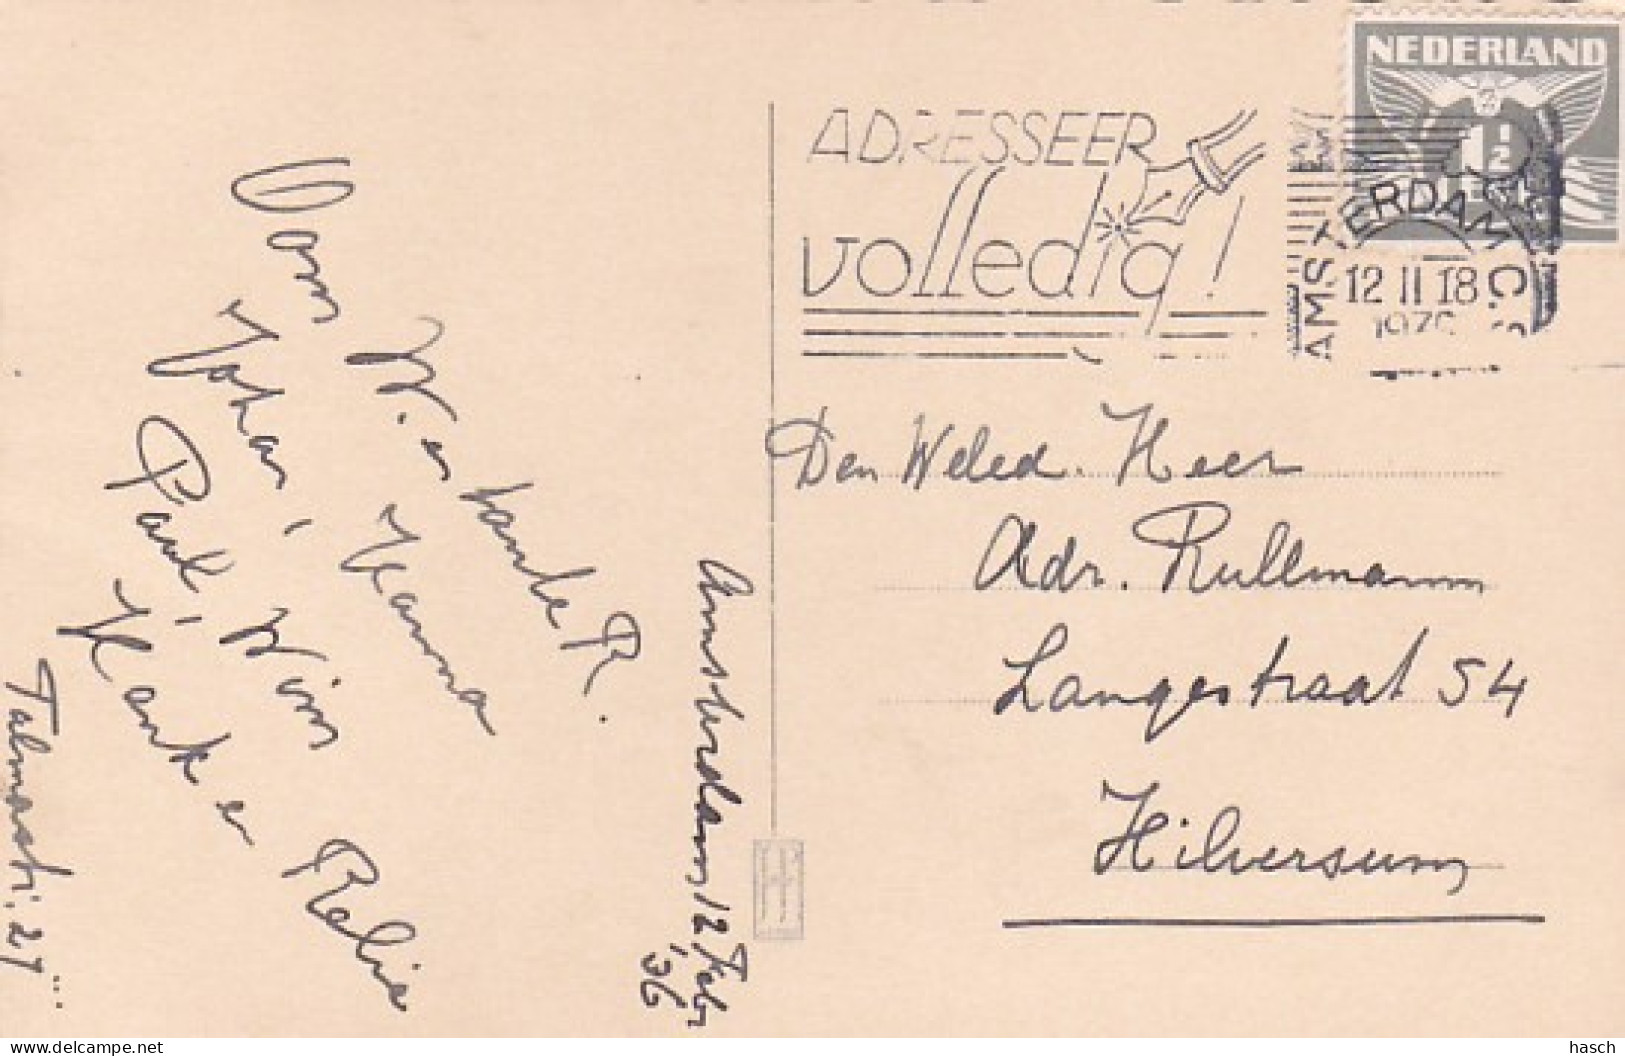 NEDERLAND
1½
ADRESSEER
volledig!
AMSTERDAM C.S.
12 II 18
Den Weled. Heer
Adr. Rullmann
Langestraat 54
Hilversum
Amsterdam, 12 Febr
'36
Oom W. en tante R.
Johan, Hanna
Paul, Wim
Henk en
Talmastr. 27
hasch
Delcampe.net